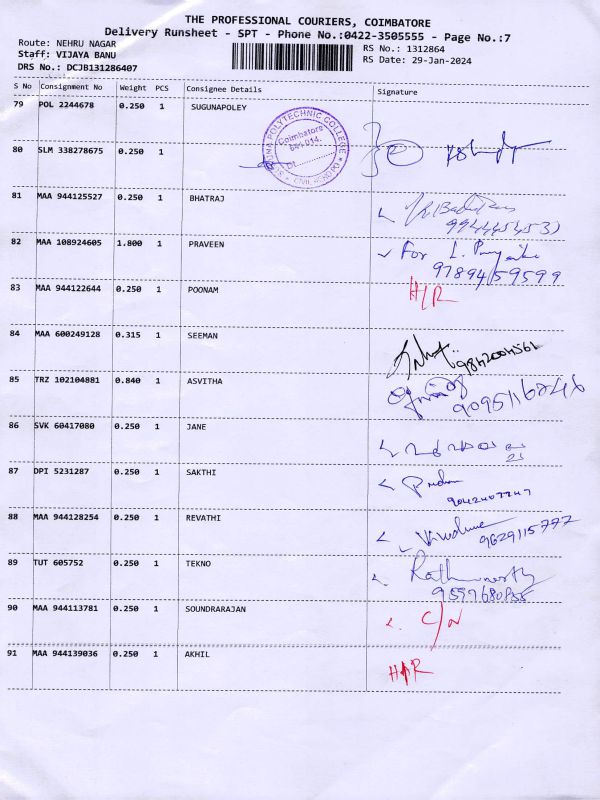 THE PROFESSIONAL COURIERS, COIMBATORE
Delivery Runsheet - SPT - Phone No.:0422-3505555 - Page No.:7
Route: NEHRU NAGAR
Staff: VIJAYA BANU
DRS No.: DCJB131286407
RS No.: 1312864
RS Date: 29-Jan-2024
S No Consignment No Weight PCS Consignee Details Signature
79 POL 2244678 0.250 1 SUGUNAPOLEY
POLYTECHNIC COLLEGE
Coimbatore
641 014.
80 SLM 338278675 0.250 1
81 MAA 944125527 0.250 1 BHATRAJ
82 MAA 108924605 1.800 1 PRAVEEN For L.
9789459599
83 MAA 944122644 0.250 1 POONAM H/R
84 MAA 600249128 0.315 1 SEEMAN
9842004561
85 TRZ 102104881 0.840 1 ASVITHA
9095116846
86 SVK 60417080 0.250 1 JANE
87 DPI 5231287 0.250 1 SAKTHI
9042407747
88 MAA 944128254 0.250 1 REVATHI
9629115777
89 TUT 605752 0.250 1 TEKNO
9597680855
90 MAA 944113781 0.250 1 SOUNDRARAJAN
91 MAA 944139036 0.250 1 AKHIL H/R